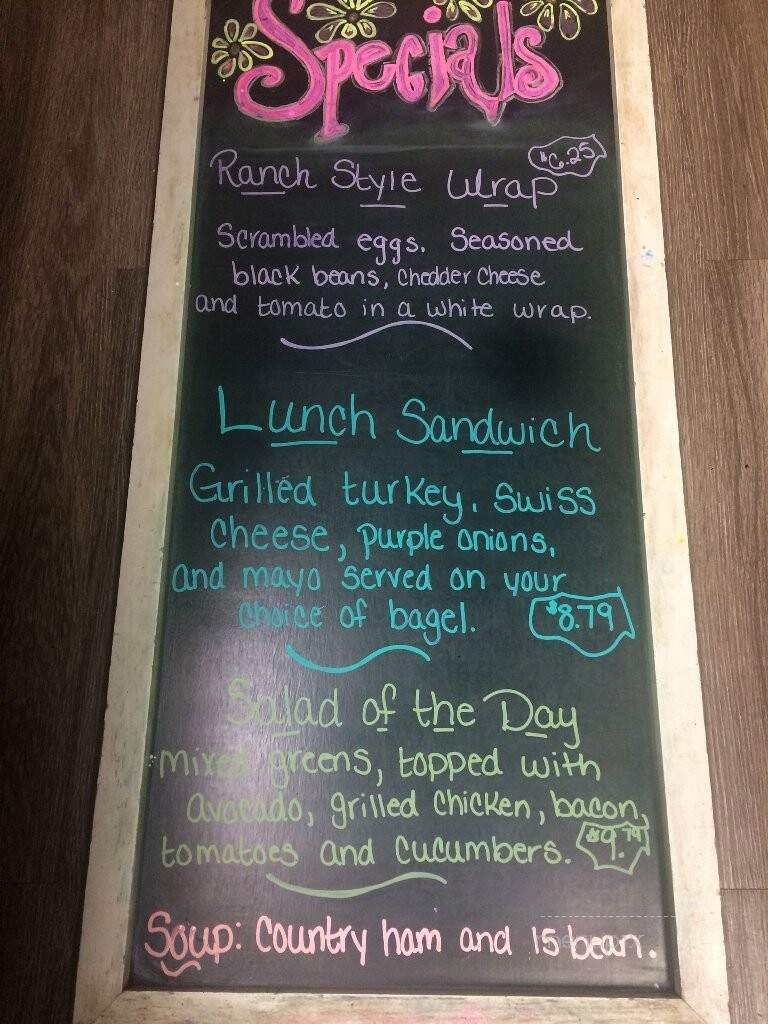 Specials
Ranch Style Wrap $6.25
Scrambled eggs, Seasoned
black beans, chedder cheese
and tomato in a white wrap.
Lunch Sandwich
Grilled turkey, Swiss
Cheese, purple onions,
and mayo served on your
choice of bagel. $8.79
Salad of the Day
mixed greens, topped with
avocado, grilled chicken, bacon,
tomatoes and cucumbers. $9.79
Soup: Country ham and 15 bean.